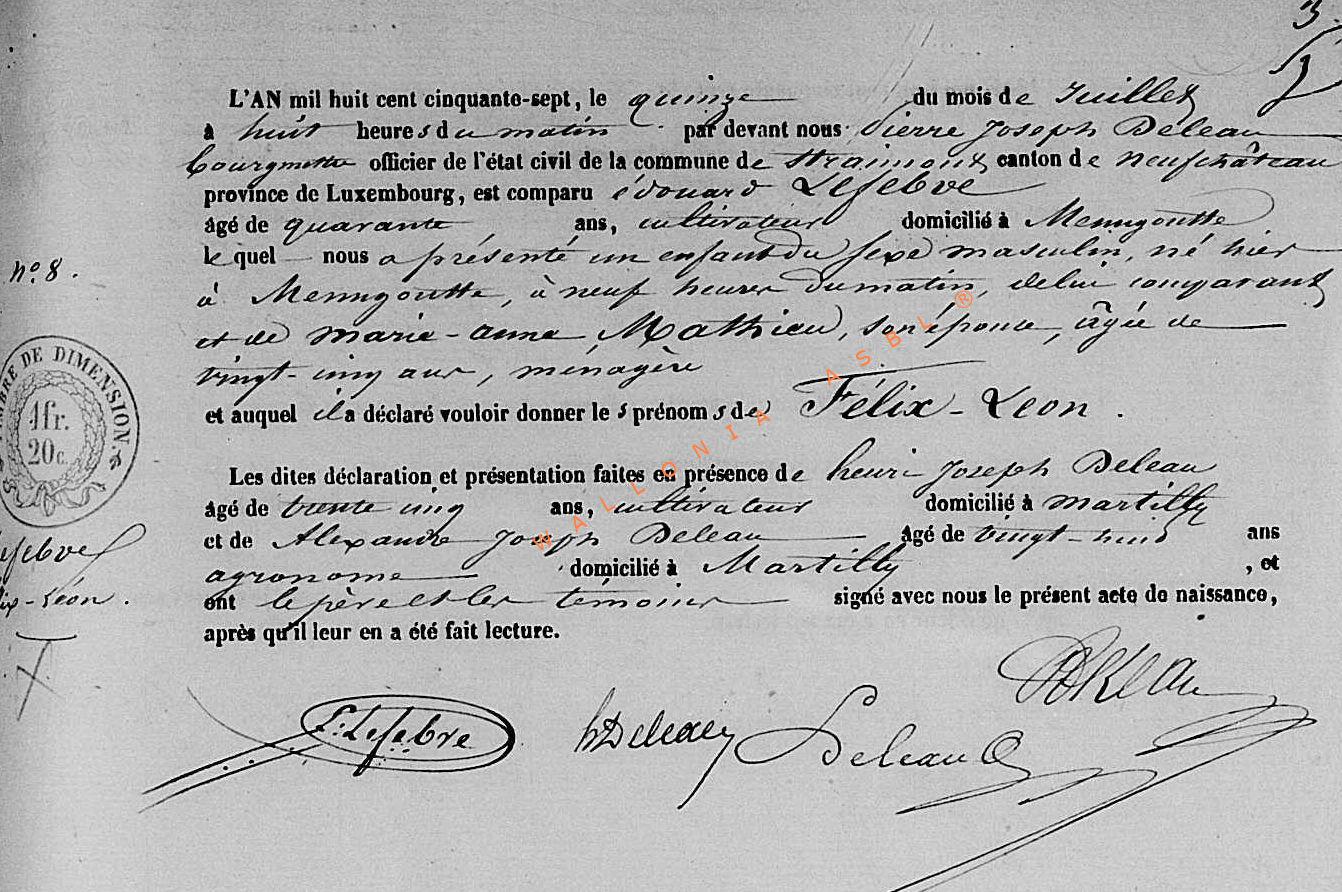 3
L'AN mil huit cent cinquante-sept, le quinze du mois de Juillet
à huit heures du matin par devant nous Pierre Joseph Deleau
bourgmestre officier de l'état civil de la commune de straimont canton de neufchâteau
province de Luxembourg, est comparu édouard Lefebve
âgé de quarante ans, cultivateur domicilié à Menugoutte
lequel nous a présenté un enfant du sexe masculin, né hier
à Menugoutte, à neuf heures du matin, de lui comparant
et de marie-anne Mathieu, son épouse, âgée de
vingt-cinq ans, ménagère
et auquel il a déclaré vouloir donner les prénoms de Félix-Léon.
Les dites déclaration et présentation faites en présence de henri Joseph Deleau
âgé de trente cinq ans, cultivateur domicilié à martilly
et de Alexandre Joseph Deleau âgé de vingt-huit ans
agronome domicilié à Martilly, et
ont le père et les témoins signé avec nous le présent acte de naissance,
après qu'il leur en a été fait lecture.
N° 8.
TIMBRE DE DIMENSION.
1 fr.
20 c.
Lefebve
Félix-Léon.
WALLONIA ASBL ®
E. Lefebve
h Deleau
Deleau